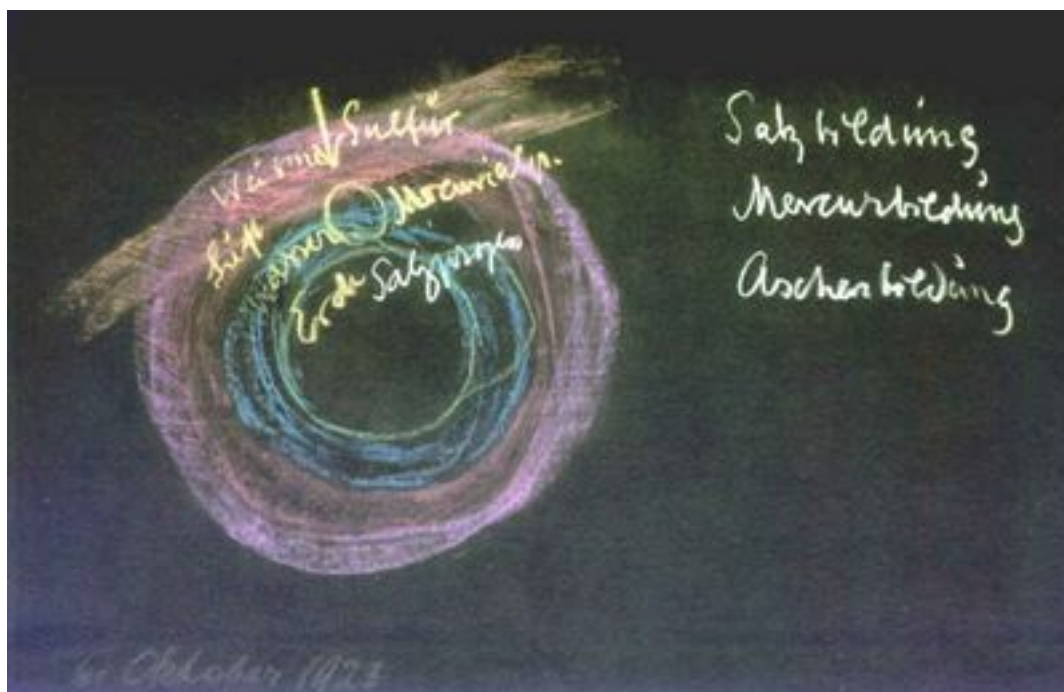 Wärme Sulfür
Luft Mercurialp.
Wasser
Erde Salzprozess
Salzbildung
Mercurbildung
Aschenbildung
6. Oktober 1923